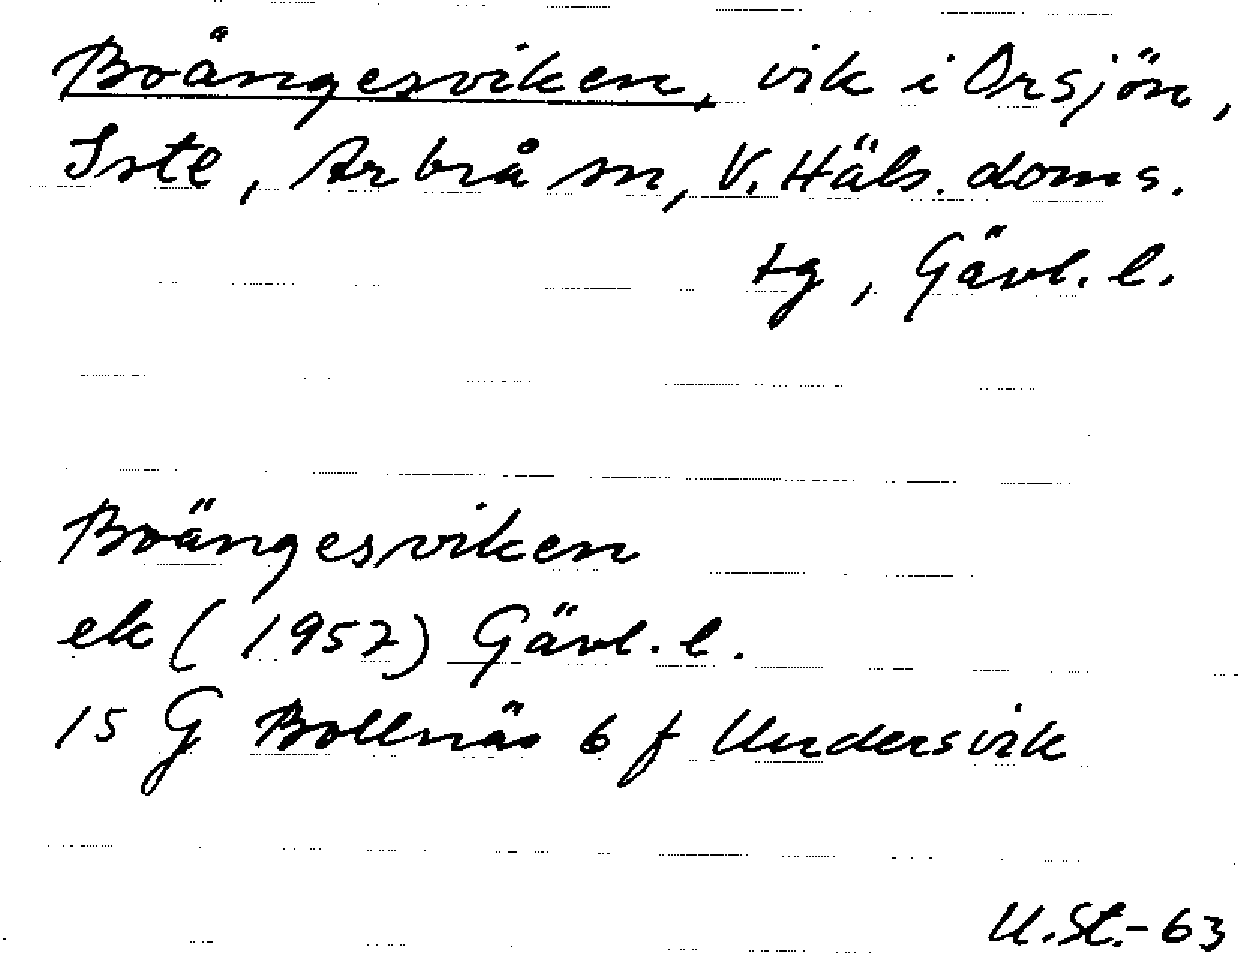 Boängesviken, vik i Orsjön,
Iste, Arbrå sn, V. Häls. doms.
tg, Gävl. l.
Boängesviken
ek (1957) Gävl. l.
15 G Bollnäs 6 f Undersvik
U.St.-63